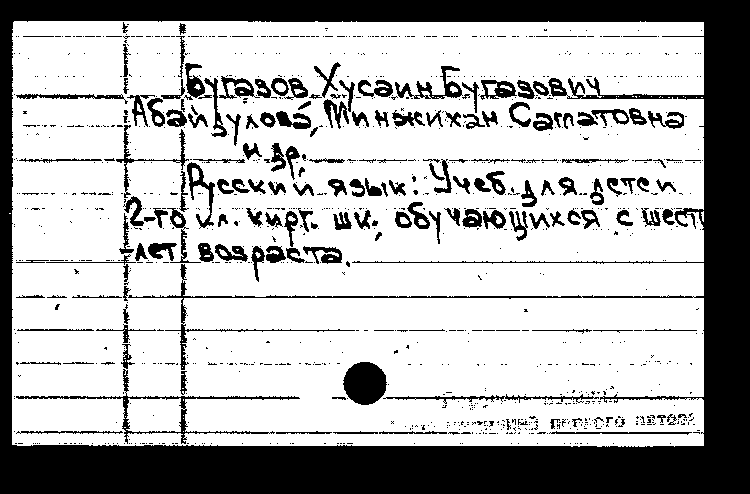 Бугазов Хусаин Бугазович
Абайдулова, Минжихан Саматовна
и др.
Русский язык: Учеб. для детей
2-го кл. кирг. шк., обучающихся с шест
-лет. возраста.
первого автора